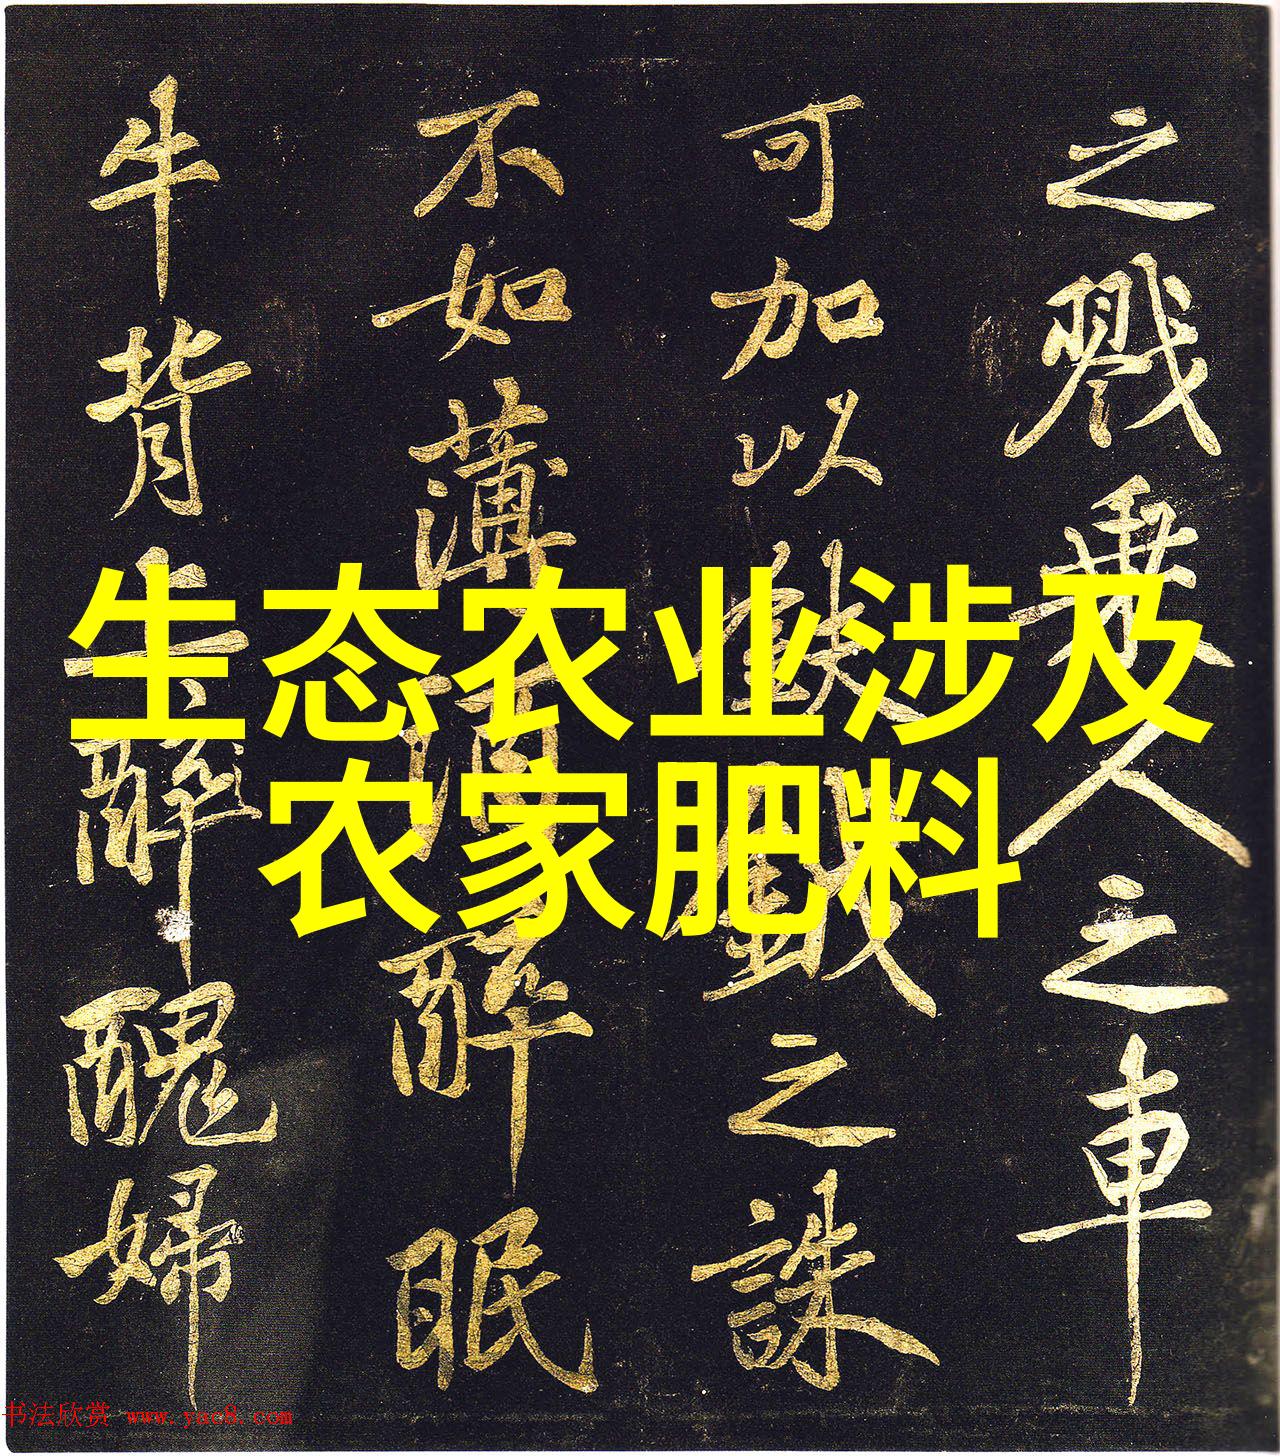 之戮乗人之車
可加以鈇鉞之誅
不如薄酒醉眠
牛背上醉醜婦
生态农业涉及
农家肥料
书法欣赏 www.yac8.com